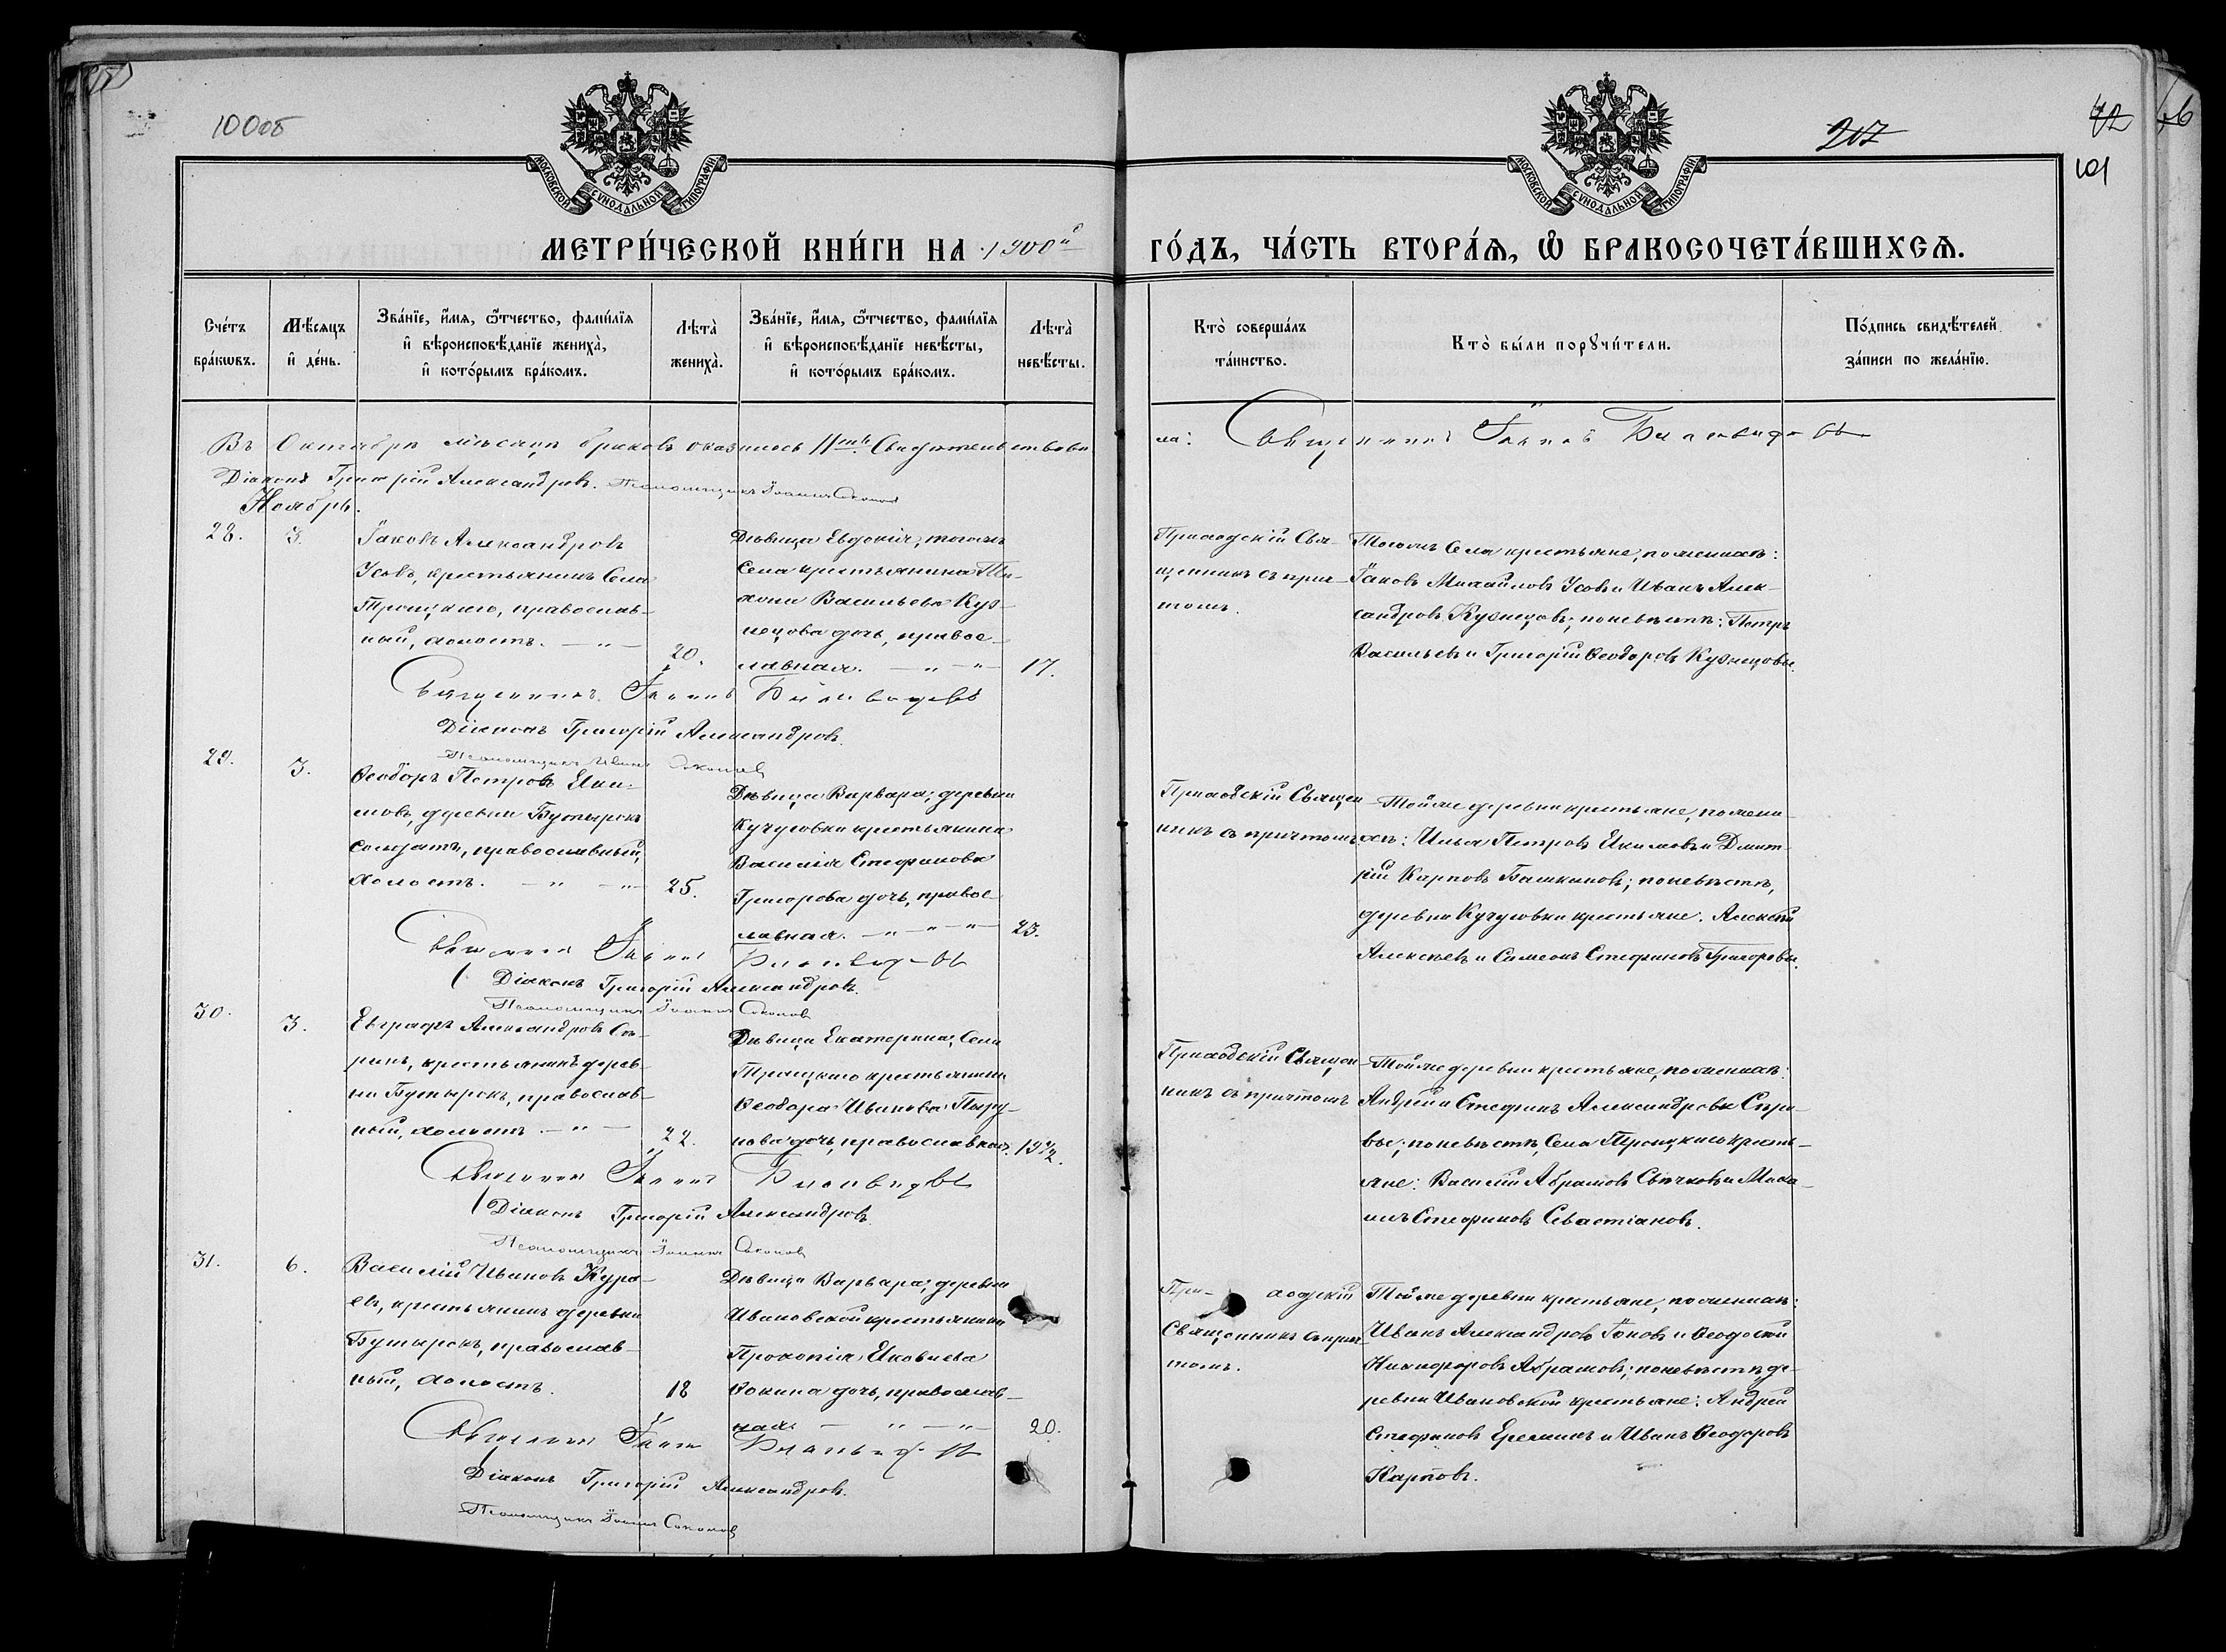 100об
217
42
101
МОСКОВСКОЙ СѴНОДАЛЬНОЙ ТИПОГРАФІИ
МОСКОВСКОЙ СѴНОДАЛЬНОЙ ТИПОГРАФІИ
МЕТРИ́ЧЕСКОЙ КНИ́ГИ НА 1900й
ГО́ДЪ, ЧА́СТЬ ВТОРА́Ѧ, Ѽ БРАКОСОЧЕТА́ВШИХСѦ.
Сче́тъ
бра́кѡвъ.
Мѣ́сяцъ
и де́нь.
Зва́нїе, и́мѧ, ѻ́тчество, фами́лїѧ
и вѣроисповѣ́данїе жениха̀,
и кото́рымъ бра́комъ.
Лѣта̀
жениха̀.
Зва́нїе, и́мѧ, ѻ́тчество, фами́лїѧ
и вѣроисповѣ́данїе невѣ́сты,
и кото́рымъ бра́комъ.
Лѣта̀
невѣ́сты.
Кто̀ соверша́лъ
та́инство.
Кто̀ бы́ли порꙋчи́тели.
По́дпись свидѣ́телей
за́писи по жела́нїю.
Въ Октябрѣ мѣсяцѣ браковъ оказалось 11ть. Свидѣтельствова
ла: Священникъ Іоаннъ
Діаконъ Григорій Александровъ. Псаломщикъ Іоаннъ Соколовъ
Ноябрь.
28. 3.
Іаковъ Александровъ
Усовъ, крестьянинъ Села
Троицкаго, православ-
ный, холостъ. — " —
20.
Дѣвица Евдокія, тогожъ
Села крестьянина Ти-
хона Васильева Куз-
нецова дочь, правос-
лавная. — " — "
17.
Приходскій Свя-
щенникъ съ прич-
томъ.
Тогожъ Села крестьяне, по женихѣ:
Іаковъ Михайловъ Усовъ и Иванъ Алек-
сандровъ Кузнецовъ; по невѣстѣ: Петръ
Васильевъ и Григорій Ѳеодоровъ Кузнецовы.
Священникъ Іоаннъ
Діаконъ Григорій Александровъ.
Псаломщикъ Иванъ Соколовъ
29. 3.
Ѳеодоръ Петровъ Еки-
мовъ, деревни Бутырокъ
солдатъ, православный,
холостъ. — " — "
25.
Дѣвица Варвара, деревни
крестьянина
Василія Стефанова
Григорова дочь, правос-
лавная. — " — " — "
23.
Приходскій Священ-
никъ съ причтомъ
Тойже деревни крестьяне, по жени-
хѣ: Илья Петровъ Екимовъ и Дмит-
рій Карповъ Башкановъ; по невѣстѣ,
деревни крестьяне: Алексѣй
Алексѣевъ и Симеонъ Стефановъ Григоровы.
Священникъ Іоаннъ
Діаконъ Григорій Александровъ.
Псаломщикъ Іоаннъ Соколовъ
30. 3.
Евграфъ Александровъ
крестьянинъ дерев-
ни Бутырокъ, православ-
ный, холостъ. — " —
22.
Дѣвица Екатерина, Села
Троицкаго крестьянина
Ѳеодора Иванова
дочь, православная.
19½.
Приходскій Священ-
никъ съ причтомъ
Тойже деревни крестьяне, по женихѣ:
Андрей и Стефанъ Александровы
по невѣстѣ, Села Троицкаго кресть-
яне: Василій Абрамовъ Свѣчковъ и Миха-
илъ Стефановъ Севастіановъ.
Священникъ Іоаннъ
Діаконъ Григорій Александровъ.
Псаломщикъ Іоаннъ Соколовъ
31. 6.
Василій Ивановъ Кура-
евъ, крестьянинъ деревни
Бутырокъ, православ-
ный, холостъ.
18
Дѣвица Варвара, деревни
Ивановской крестьянина
Прокопія Яковлева
Ѳокина дочь, православ-
ная. — " — "
20.
Приходскій
Священникъ съ прич-
томъ.
Тойже деревни крестьяне, по женихѣ:
Иванъ Александровъ и Ѳеодосій
Никифоровъ Абрамовъ; по невѣстѣ, де-
ревни Ивановской крестьяне: Андрей
Стефановъ Ереминъ и Иванъ Ѳеодоровъ
Карповъ.
Священникъ Іоаннъ
Діаконъ Григорій Александровъ.
Псаломщикъ Іоаннъ Соколовъ